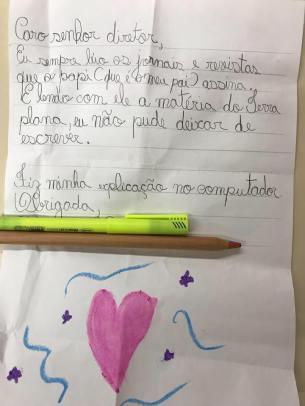 Caro senhor diretor,
Eu sempre lia os jornais e revistas
que o papi (que é o meu pai) assina.
E lendo com ele a matéria do Terra
plana, eu não pude deixar de
escrever.
Fiz minha explicação no computador
Obrigada,